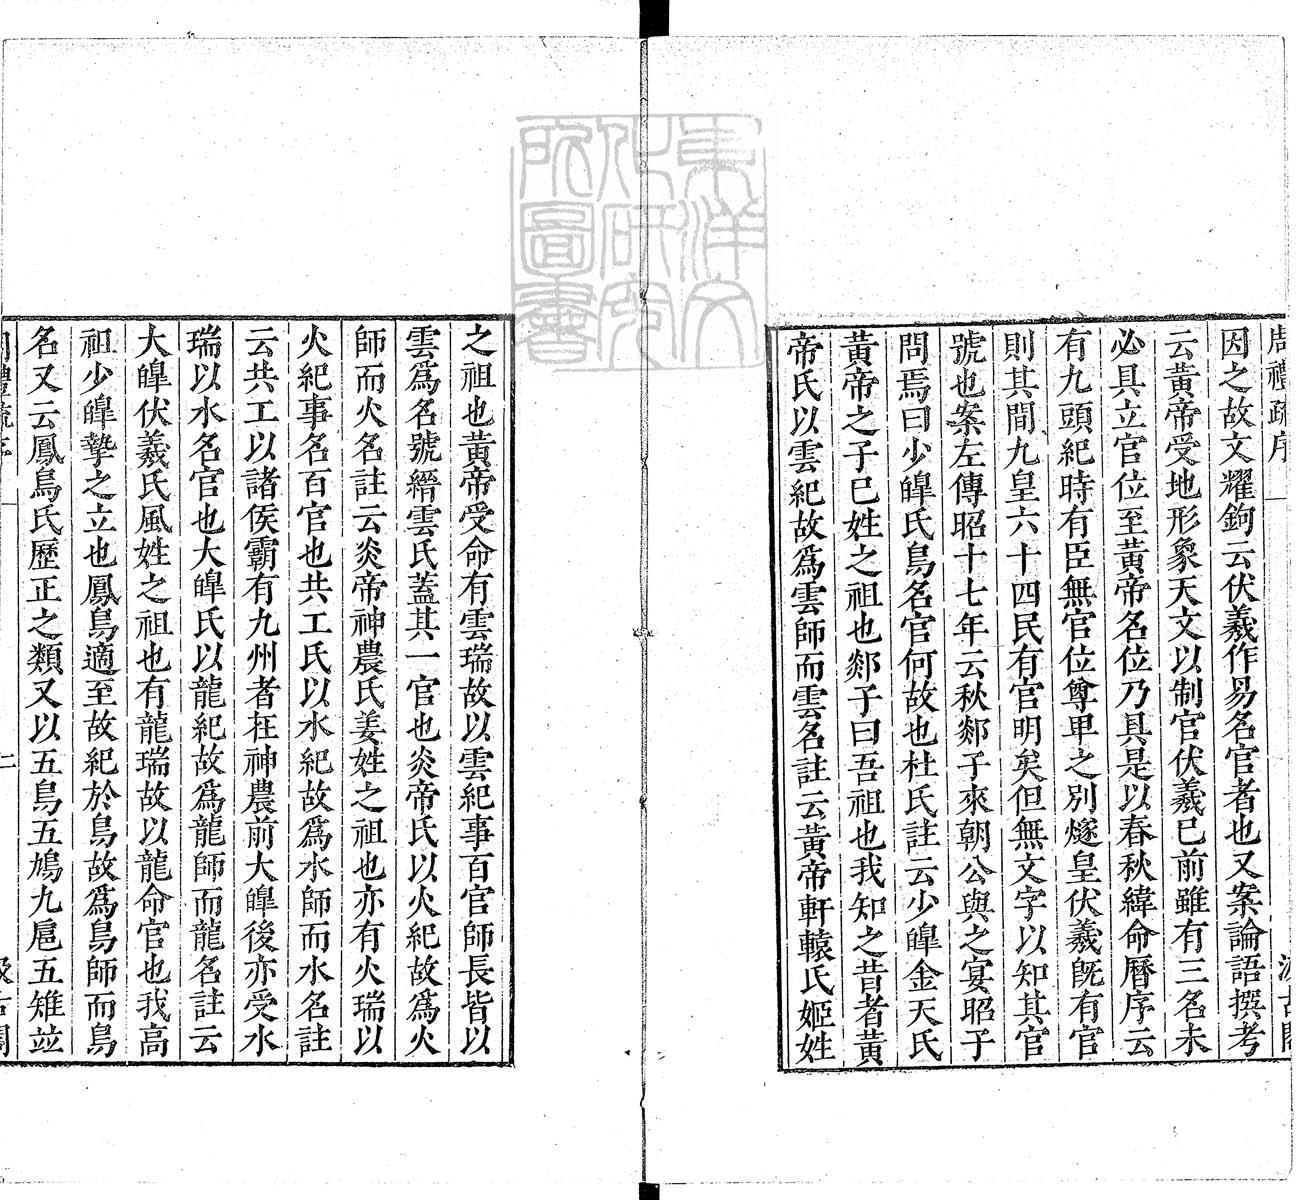 周禮疏序
汲古閣
因之故文耀鉤云伏羲作易名官者也又案論語撰考
云黃帝受地形象天文以制官伏羲已前雖有三名未
必具立官位至黃帝名位乃具是以春秋緯命曆序云
有九頭紀時有臣無官位尊卑之別燧皇伏羲旣有官
則其間九皇六十四民有官明矣但無文字以知其官
號也案左傳昭十七年云秋郯子來朝公與之宴昭子
問焉曰少皥氏鳥名官何故也杜氏註云少皥金天氏
黃帝之子已姓之祖也郯子曰吾祖也我知之昔者黃
帝氏以雲紀故爲雲師而雲名註云黃帝軒轅氏姬姓
之祖也黃帝受命有雲瑞故以雲紀事百官師長皆以
雲爲名號縉雲氏蓋其一官也炎帝氏以火紀故爲火
師而火名註云炎帝神農氏姜姓之祖也亦有火瑞以
火紀事名百官也共工氏以水紀故爲水師而水名註
云共工以諸侯霸有九州者在神農前大皥後亦受水
瑞以水名官也大皥氏以龍紀故爲龍師而龍名註云
大皥伏羲氏風姓之祖也有龍瑞故以龍命官也我高
祖少皥摯之立也鳳鳥適至故紀於鳥故爲鳥師而鳥
名又云鳳鳥氏歷正之類又以五鳥五鳩九扈五雉竝
周禮疏序
二
汲古閣
東洋文
化研究
所圖書